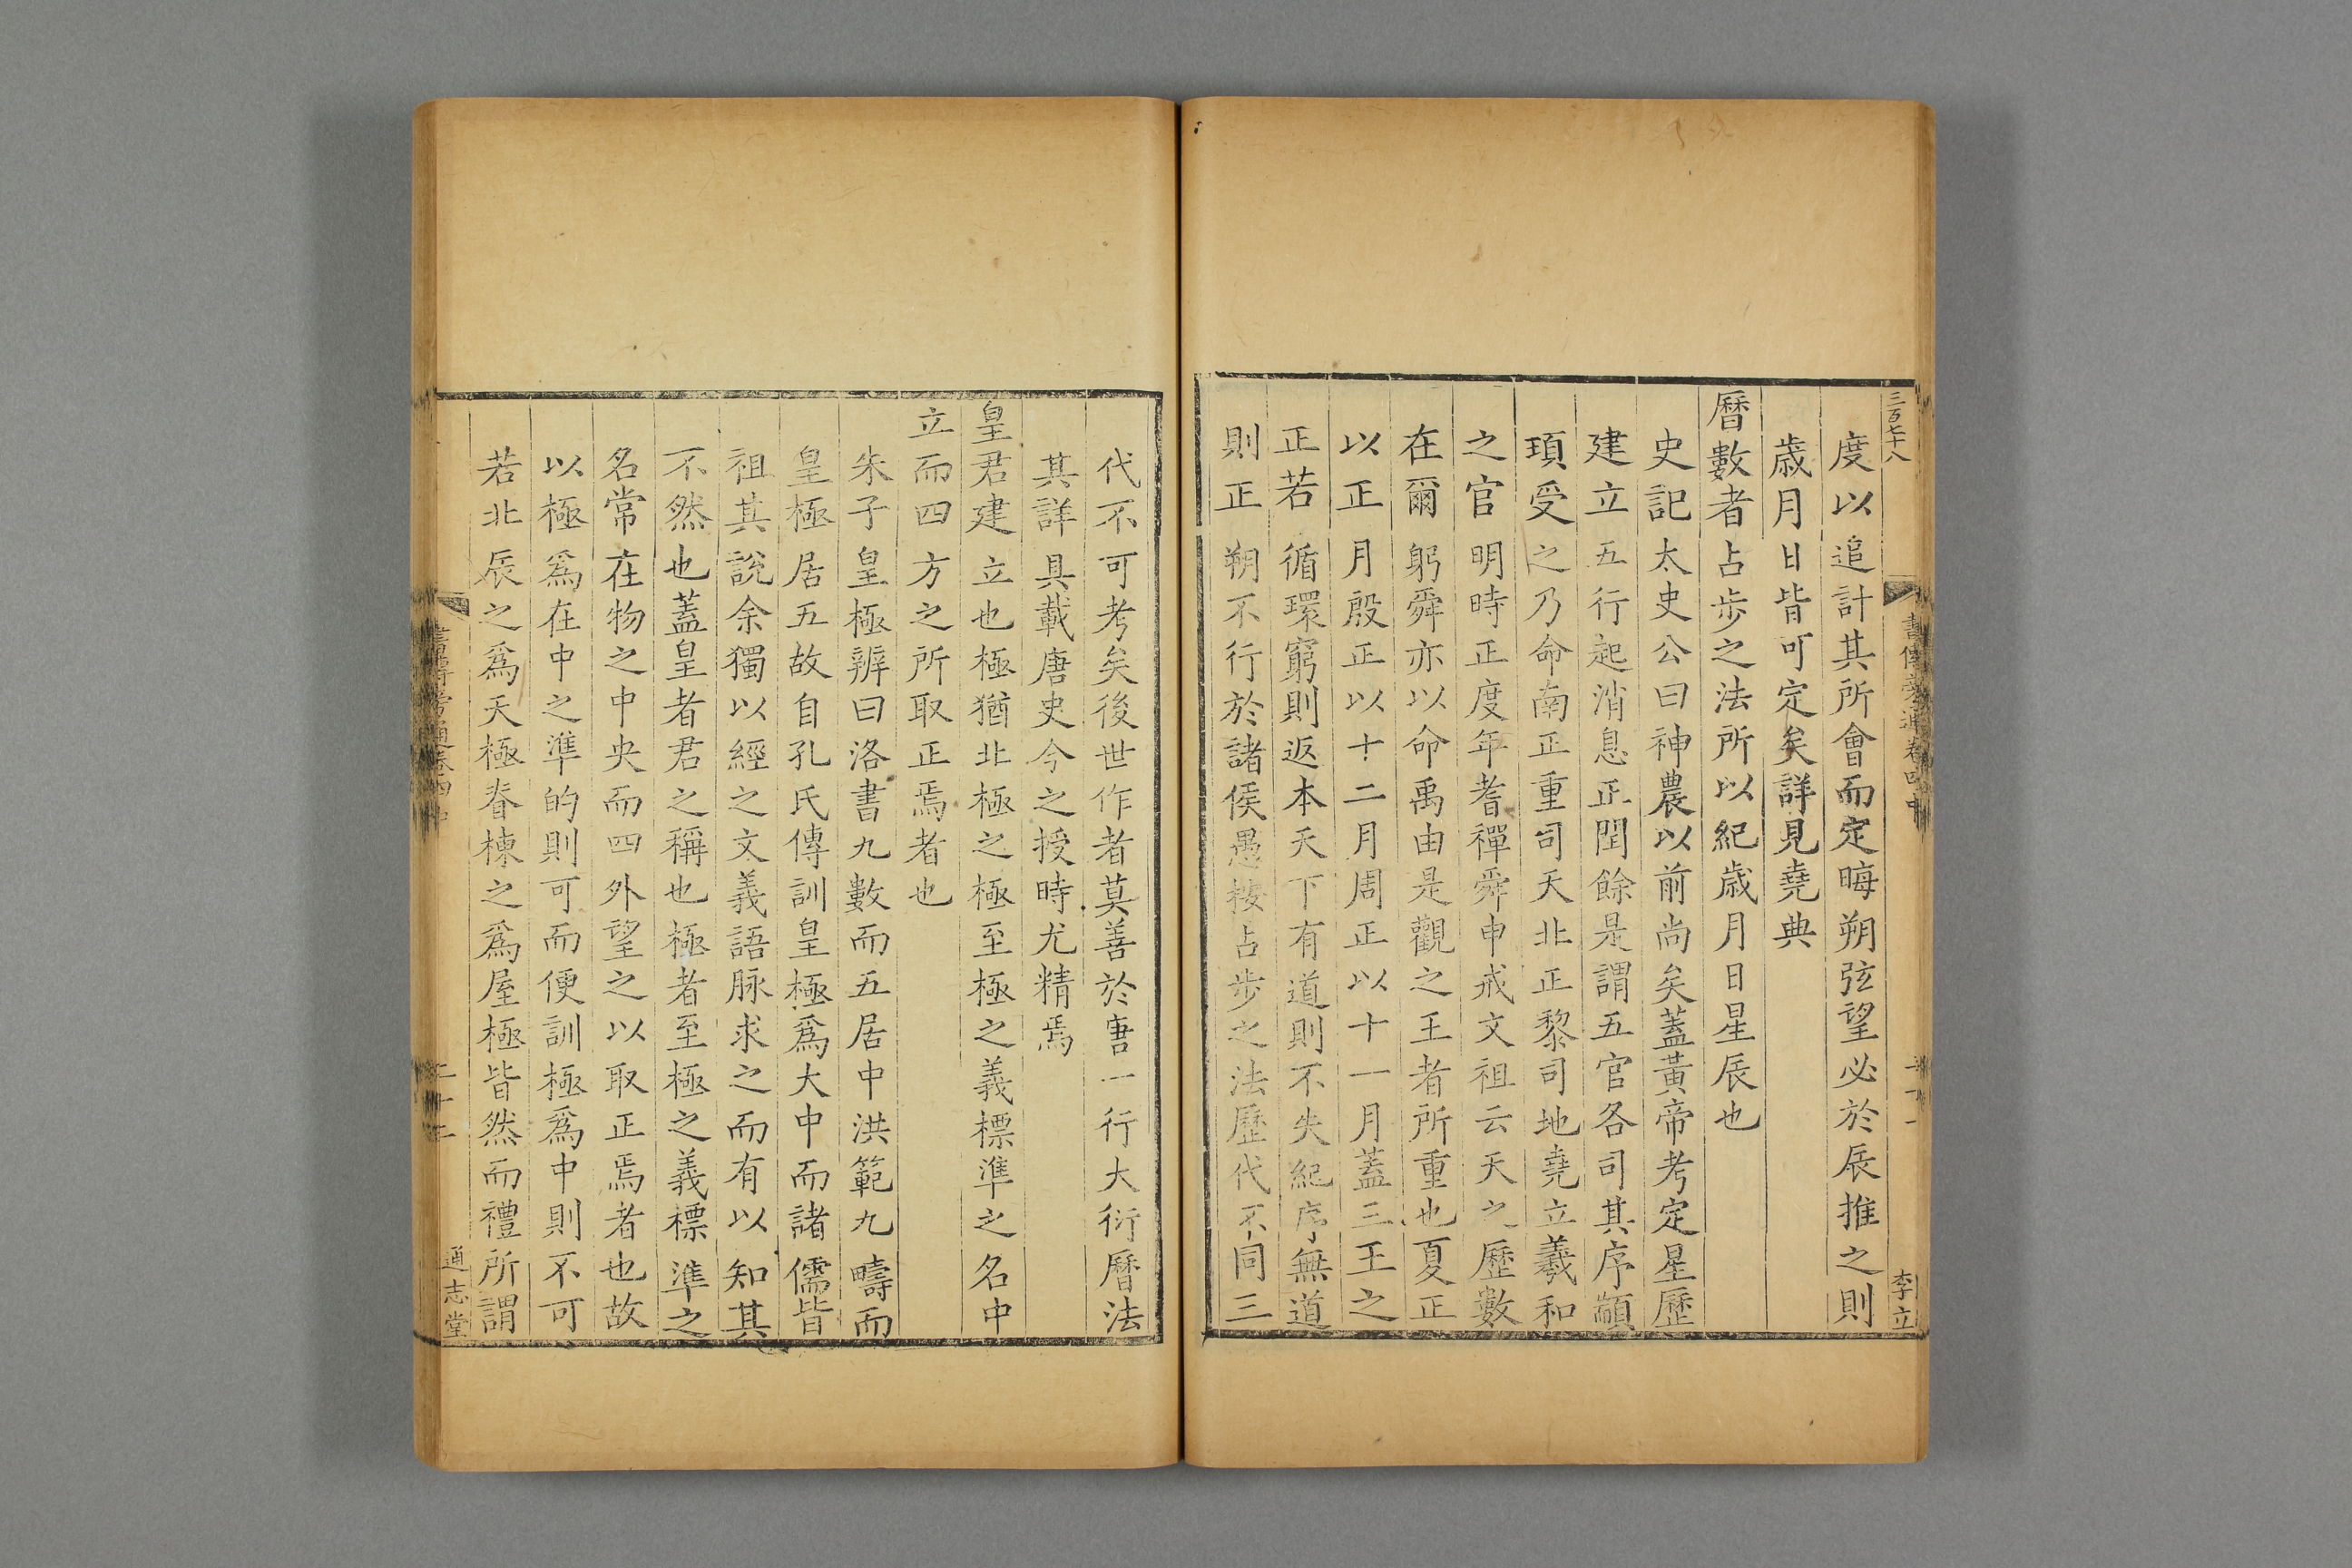 三百七十八
李立
度以追計其所會而定晦朔弦望必於辰推之則
歲月日皆可定矣詳見堯典
曆數者占步之法所以紀歲月日星辰也
史記太史公曰神農以前尚矣蓋黃帝考定星歷
建立五行起消息正閏餘是謂五官各司其序顓
頊受之乃命南正重司天北正黎司地堯立羲和
之官明時正度年耆禪舜申戒文祖云天之歷數
在爾躬舜亦以命禹由是觀之王者所重也夏正
以正月殷正以十二月周正以十一月蓋三王之
正若循環窮則返本天下有道則不失紀序無道
則正朔不行於諸侯愚按占步之法歷代不同三
代不可考矣後世作者莫善於唐一行大衍曆法
其詳具載唐史今之授時尤精焉
皇君建立也極猶北極之極至極之義標準之名中
立而四方之所取正焉者也
朱子皇極辨曰洛書九數而五居中洪範九疇而
皇極居五故自孔氏傳訓皇極爲大中而諸儒皆
祖其說余獨以經之文義語脉求之而有以知其
不然也蓋皇者君之稱也極者至極之義標準之
名常在物之中央而四外望之以取正焉者也故
以極爲在中之準的則可而便訓極爲中則不可
若北辰之爲天極脊棟之爲屋極皆然而禮所謂
通志堂